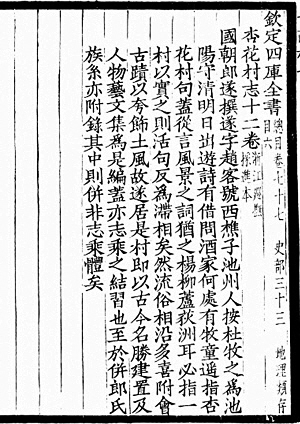 欽定四庫全書 總目卷七十七 史部三十三 地理類存目六
杏花村志十二卷 浙江巡撫採進本
國朝郎遂撰遂字趙客號西樵子池州人按杜牧之為池
陽守清明日出遊詩有借問酒家何處有牧童遥指杏
花村句蓋從言風景之詞猶之楊柳蘆荻洲耳必指一
村以實之則活句反為滯相矣然流俗相沿多喜附會
古蹟以夸飾土風故遂居是村即以古今名勝建置及
人物藝文集為是編蓋亦志乘之結習也至於併郎氏
族系亦附錄其中則併非志乘體矣